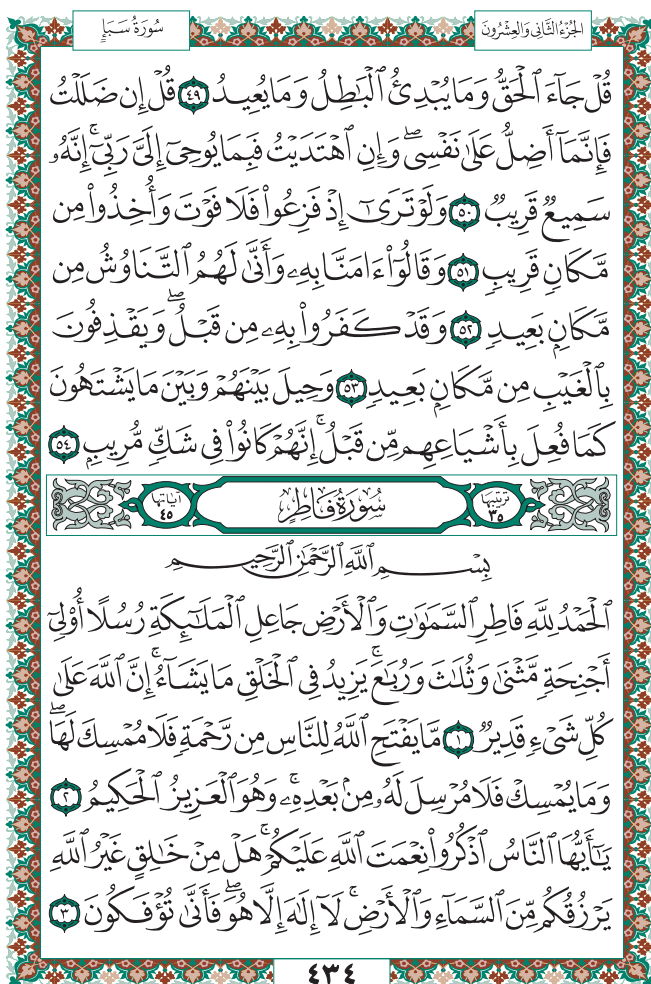 الجُزْءُ الثَّانِي وَالعِشْرُونَ
سُورَةُ سَبَإٍ
قُلۡ جَآءَ ٱلۡحَقُّ وَمَا يُبۡدِئُ ٱلۡبَٰطِلُ وَمَا يُعِيدُ ٤٩ قُلۡ إِن ضَلَلۡتُ
فَإِنَّمَآ أَضِلُّ عَلَىٰ نَفۡسِيۖ وَإِنِ ٱهۡتَدَيۡتُ فَبِمَا يُوحِيٓ إِلَيَّ رَبِّيٓۚ إِنَّهُۥ
سَمِيعٞ قَرِيبٞ ٥٠ وَلَوۡ تَرَىٰٓ إِذۡ فَزِعُواْ فَلَا فَوۡتَ وَأُخِذُواْ مِن
مَّكَانٖ قَرِيبٖ ٥١ وَقَالُوٓاْ ءَامَنَّا بِهِۦ وَأَنَّىٰ لَهُمُ ٱلتَّنَاوُشُ مِن
مَّكَانِۭ بَعِيدٖ ٥٢ وَقَدۡ كَفَرُواْ بِهِۦ مِن قَبۡلُۖ وَيَقۡذِفُونَ
بِٱلۡغَيۡبِ مِن مَّكَانِۭ بَعِيدٖ ٥٣ وَحِيلَ بَيۡنَهُمۡ وَبَيۡنَ مَا يَشۡتَهُونَ
كَمَا فُعِلَ بِأَشۡيَاعِهِم مِّن قَبۡلُۚ إِنَّهُمۡ كَانُواْ فِي شَكّٖ مُّرِيبِۭ ٥٤
ترتيبها ٣٥ سُورَةُ فَاطِرٍ آياتها ٤٥
بِسۡمِ ٱللَّهِ ٱلرَّحۡمَٰنِ ٱلرَّحِيمِ
ٱلۡحَمۡدُ لِلَّهِ فَاطِرِ ٱلسَّمَٰوَٰتِ وَٱلۡأَرۡضِ جَاعِلِ ٱلۡمَلَٰٓئِكَةِ رُسُلًا أُوْلِيٓ
أَجۡنِحَةٖ مَّثۡنَىٰ وَثُلَٰثَ وَرُبَٰعَۚ يَزِيدُ فِي ٱلۡخَلۡقِ مَا يَشَآءُۚ إِنَّ ٱللَّهَ عَلَىٰ
كُلِّ شَيۡءٖ قَدِيرٞ ١ مَّا يَفۡتَحِ ٱللَّهُ لِلنَّاسِ مِن رَّحۡمَةٖ فَلَا مُمۡسِكَ لَهَاۖ
وَمَا يُمۡسِكۡ فَلَا مُرۡسِلَ لَهُۥ مِنۢ بَعۡدِهِۦۚ وَهُوَ ٱلۡعَزِيزُ ٱلۡحَكِيمُ ٢
يَٰٓأَيُّهَا ٱلنَّاسُ ٱذۡكُرُواْ نِعۡمَتَ ٱللَّهِ عَلَيۡكُمۡۚ هَلۡ مِنۡ خَٰلِقٍ غَيۡرُ ٱللَّهِ
يَرۡزُقُكُم مِّنَ ٱلسَّمَآءِ وَٱلۡأَرۡضِۚ لَآ إِلَٰهَ إِلَّا هُوَۖ فَأَنَّىٰ تُؤۡفَكُونَ ٣
٤٣٤